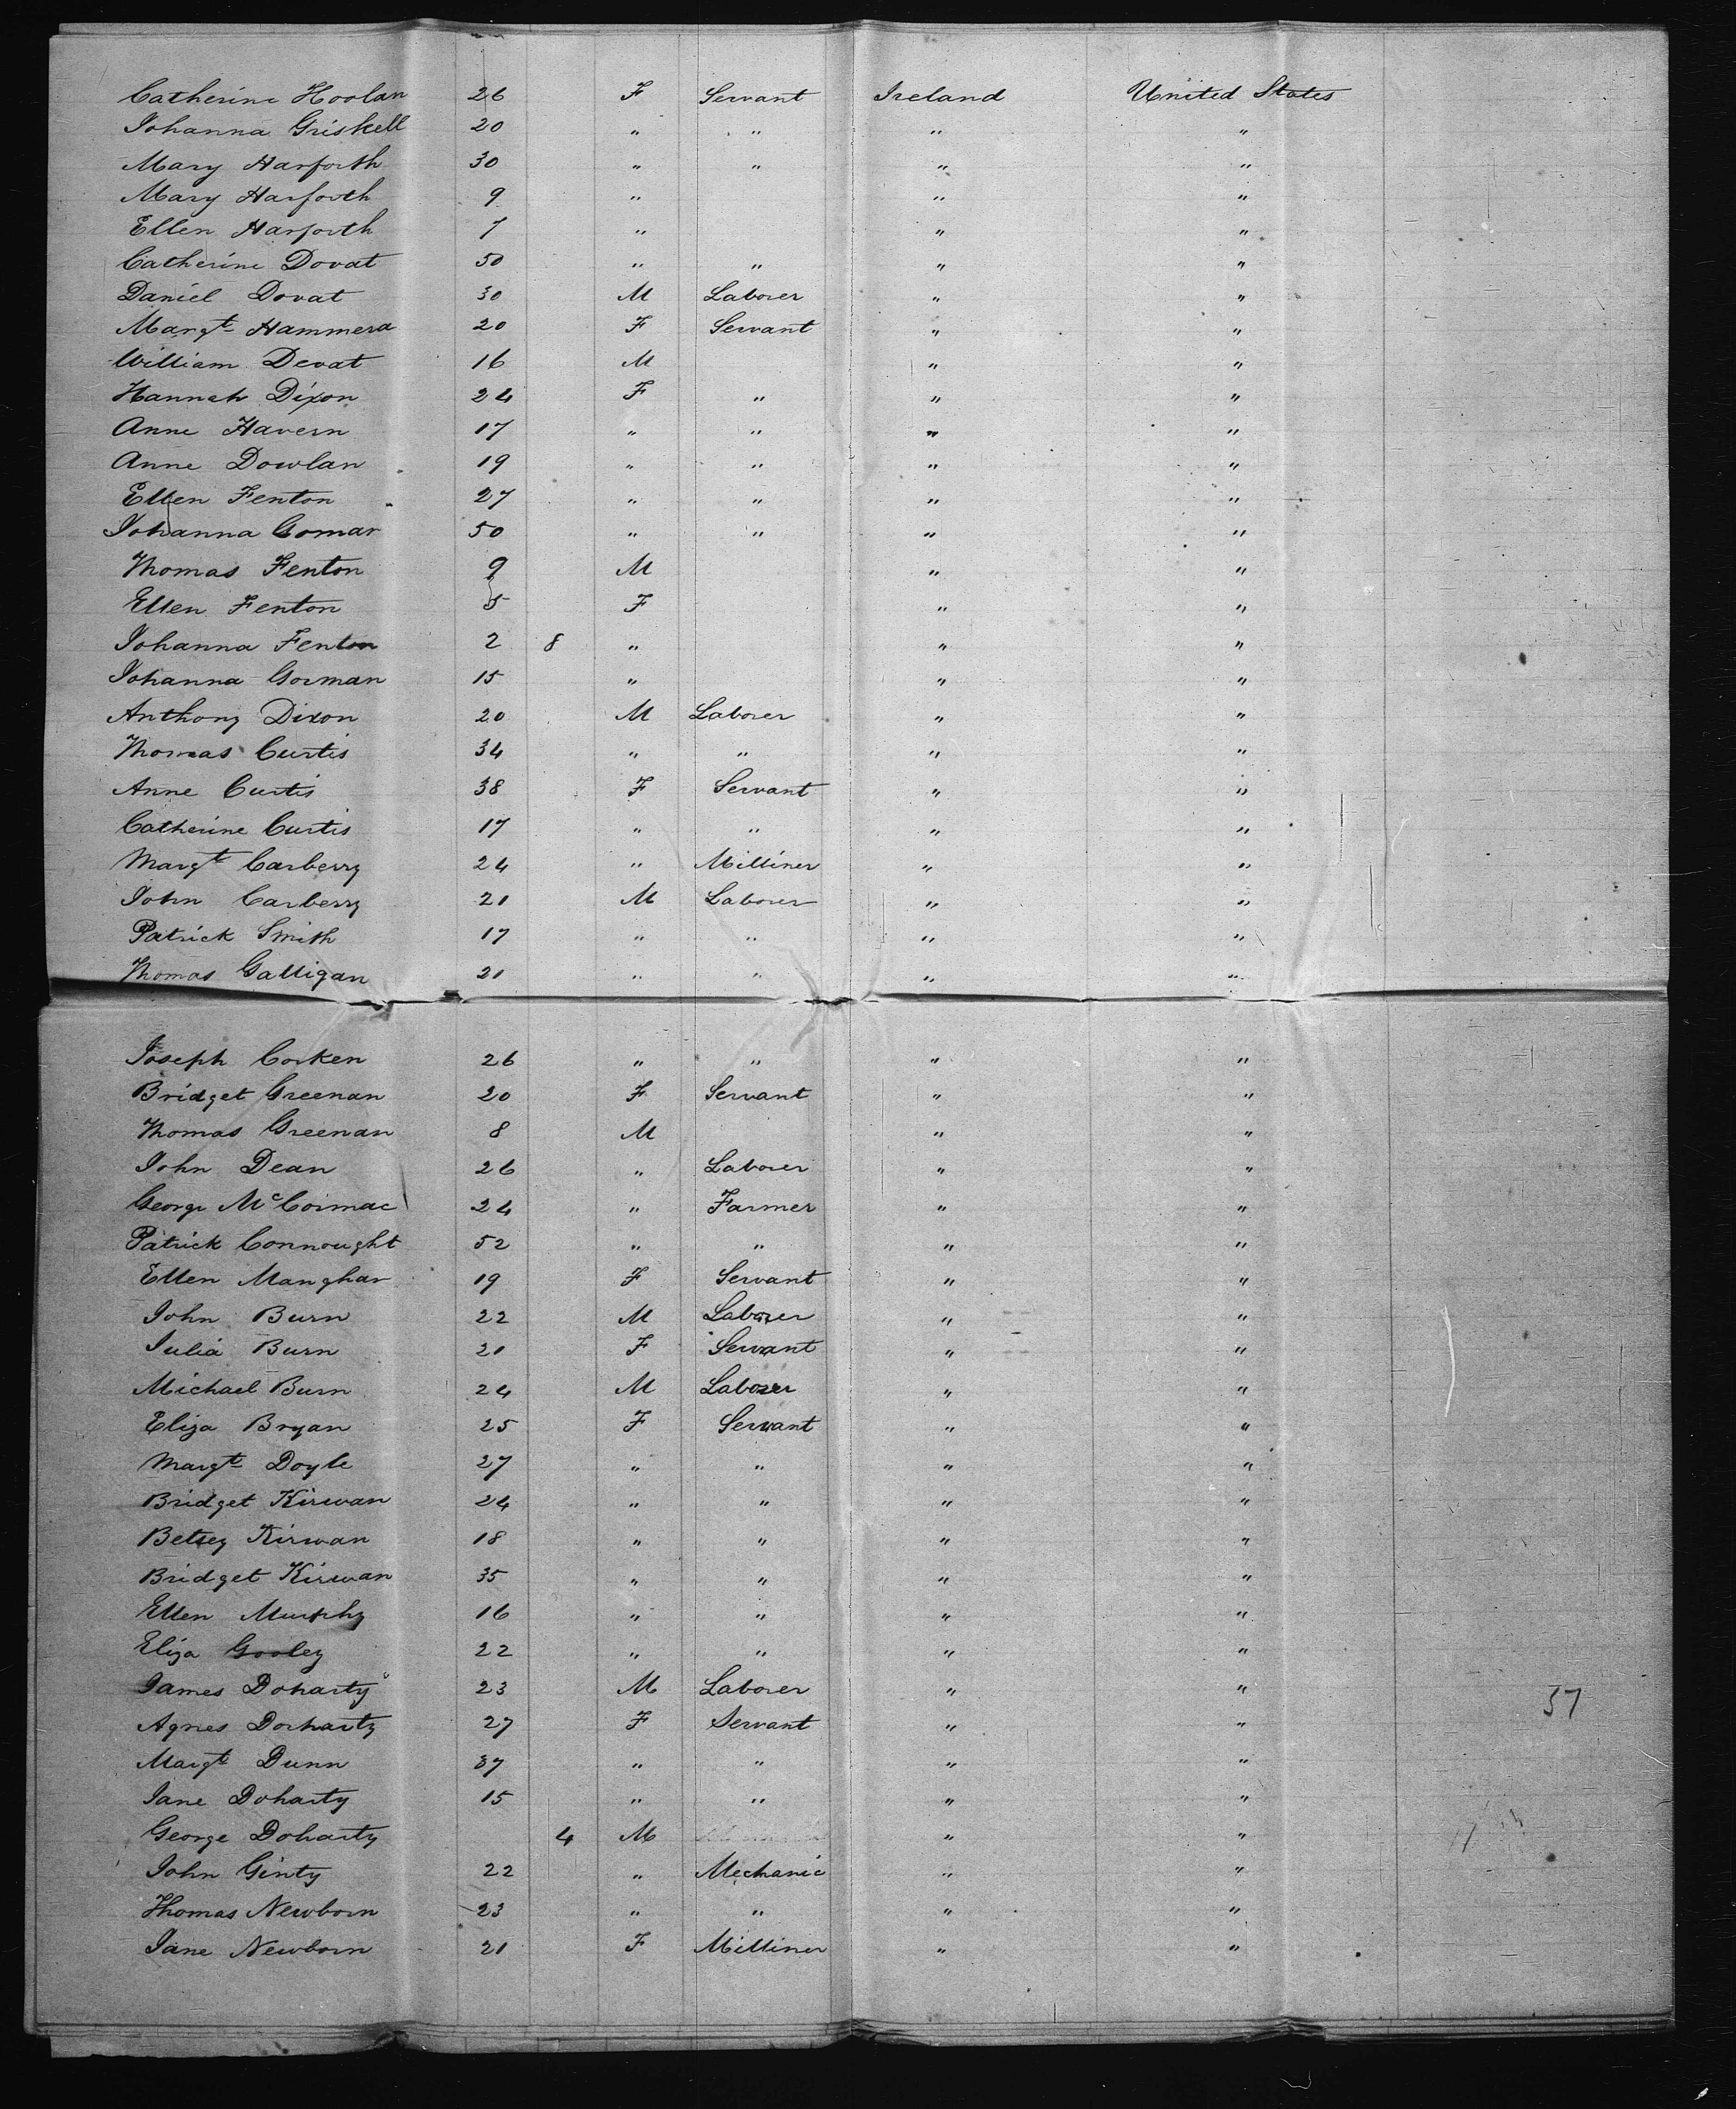 Catherine Hoolan 26 F Servant Ireland United States
Johanna Griskell 20 " " " "
Mary Harforth 30 " " " "
Mary Harforth 9 " " "
Ellen Harforth 7 " " "
Catherine Dovat 50 " " " "
Daniel Dovat 30 M Laborer " "
Margt Hammera 20 F Servant " "
William Devat 16 M " "
Hannah Dixon 24 F " " "
Anne Havern 17 " " " "
Anne Dowlan 19 " " " "
Ellen Fenton 27 " " " "
Johanna Gomar 50 " " " "
Thomas Fenton 9 M " "
Ellen Fenton 5 F " "
Johanna Fenton 2 8 " " "
Johanna Gorman 15 " " "
Anthony Dixon 20 M Laborer " "
Thomas Curtis 34 " " " "
Anne Curtis 38 F Servant " "
Catherine Curtis 17 " " " "
Margt Carberry 24 " Milliner " "
John Carberry 21 M Laborer " "
Patrick Smith 17 " " " "
Thomas Galligan 21 " " " "
Joseph Corken 26 " " " "
Bridget Greenan 20 F Servant " "
Thomas Greenan 8 M " "
John Dean 26 " Laborer " "
George McCormac 24 " Farmer " "
Patrick Connought 52 " " " "
Ellen Manghar 19 F Servant " "
John Burn 22 M Laborer " "
Julia Burn 21 F Servant " "
Michael Burn 24 M Laborer " "
Eliza Bryan 25 F Servant " "
Margt Doyle 27 " " " "
Bridget Kirwan 24 " " " "
Betsey Kirwan 18 " " " "
Bridget Kirwan 35 " " " "
Ellen Murphy 16 " " " "
Eliza Gooley 22 " " " "
James Doharty 23 M Laborer " "
37
Agnes Dorharty 27 F Servant " "
Margt Dunn 37 " " " "
Jane Doharty 15 " " " "
George Doharty 4 M " "
John Ginty 22 " Mechanic " "
Thomas Newborn 23 " " " "
Jane Newborn 21 F Milliner " "